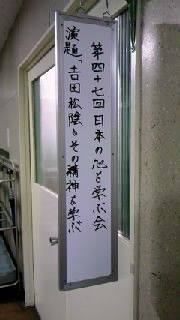 第四十七回日本の心を学ぶ会
演題「吉田松陰とその精神を学ぶ